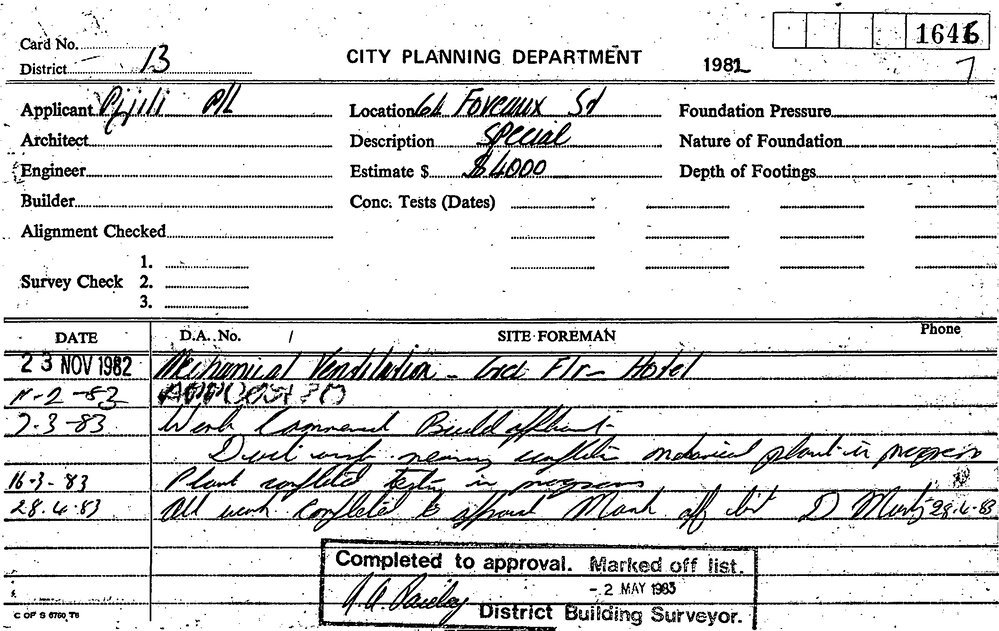 1646
Card No.
District 13
CITY PLANNING DEPARTMENT
1982
7
Applicant Pijili P/L
Location 64 Foveaux St
Foundation Pressure
Architect
Description Special
Nature of Foundation
Engineer
Estimate $ $4000
Depth of Footings
Builder
Conc. Tests (Dates)
Alignment Checked
Survey Check
1.
2.
3.
DATE
D.A. No. /
SITE FOREMAN
Phone
23 NOV 1982 Mechanical Ventilation - Grd Flr - Hotel
-2-83
7-3-83 Work Commenced Build
Duct work nearing completion mechanical plant in progress
16-3-83 Plant completed testing in progress
28.4.83 All work completed to approval Mark off list D 28-4-83
Completed to approval. Marked off list.
- 2 MAY 1983
District Building Surveyor.
C OF S 6760 T8